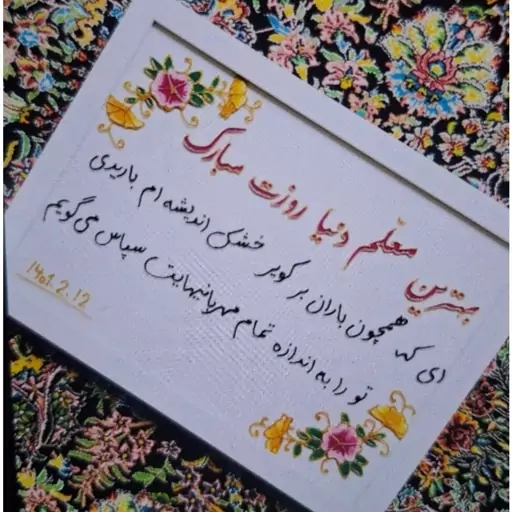 بهترین معلم دنیا روزت مبارک
ای که همچون باران بر کویر خشک اندیشه ام باریدی
تو را به اندازه تمام مهربانیهایت سپاس می گویم
1401.2.12